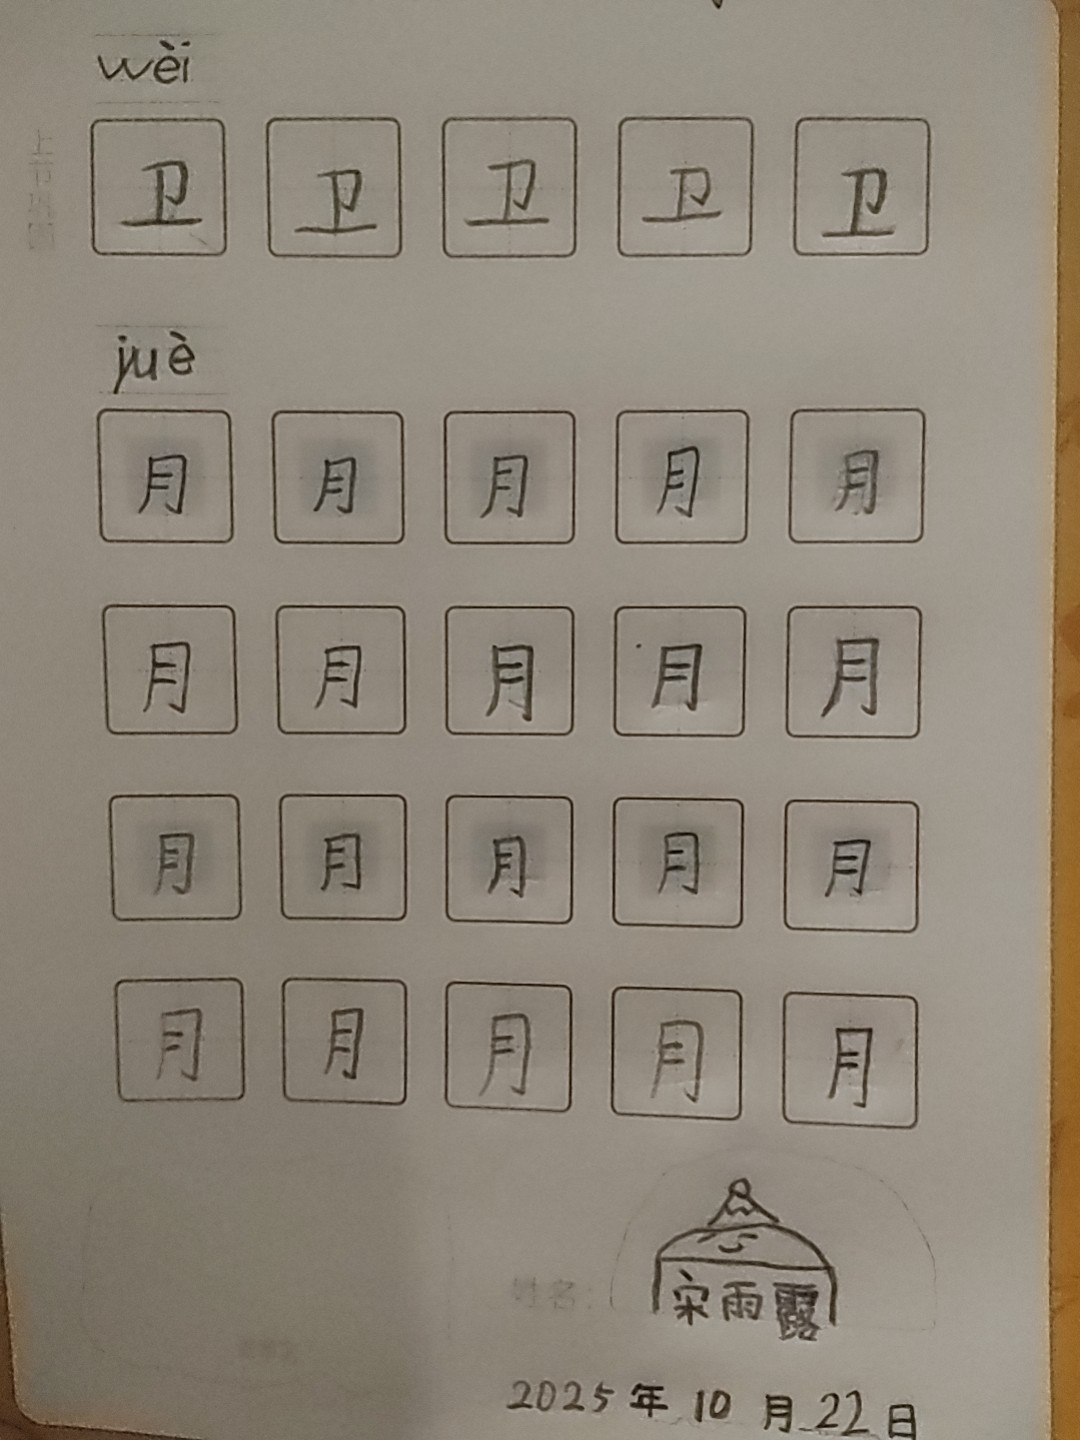 wèi
卫 卫 卫 卫 卫
juè
月 月 月 月 月
月 月 月 月 月
月 月 月 月 月
月 月 月 月 月
姓名:
宋雨露
2025年10月22日